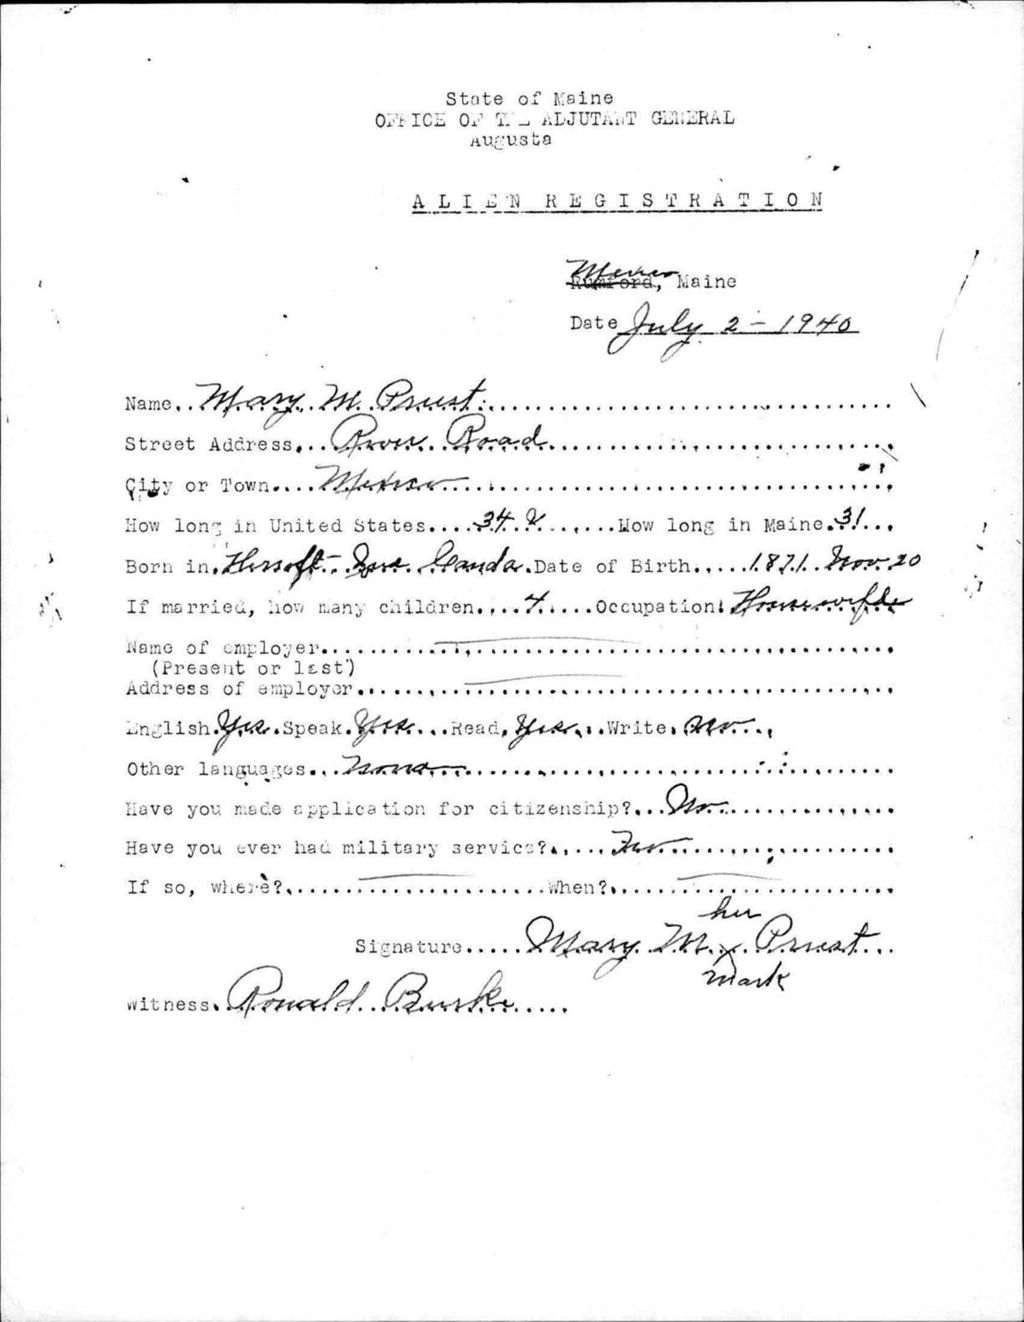 State of Maine
OFFICE OF THE ADJUTANT GENERAL
Augusta
ALIEN REGISTRATION
Mexico
Rumford, Maine
Date July 2 - 1940
Name.. Mary M. Priest
Street Address... River Road
City or Town.... Mexico
How long in United States.... 34 Y ...... How long in Maine. 31...
Born in. Canada. Date of Birth..... 1871. Nov 20
If married, how many children.... 4..... Occupation. Housewife
Name of employer
(Present or last)
Address of employer
English. Yes. Speak. Yes... Read. Yes... Write. No...
Other languages... None
Have you made application for citizenship?... No
Have you ever had military service?..... No
If so, where? When?
her
Signature..... Mary M. x Priest...
mark
Witness. Ronald Burke